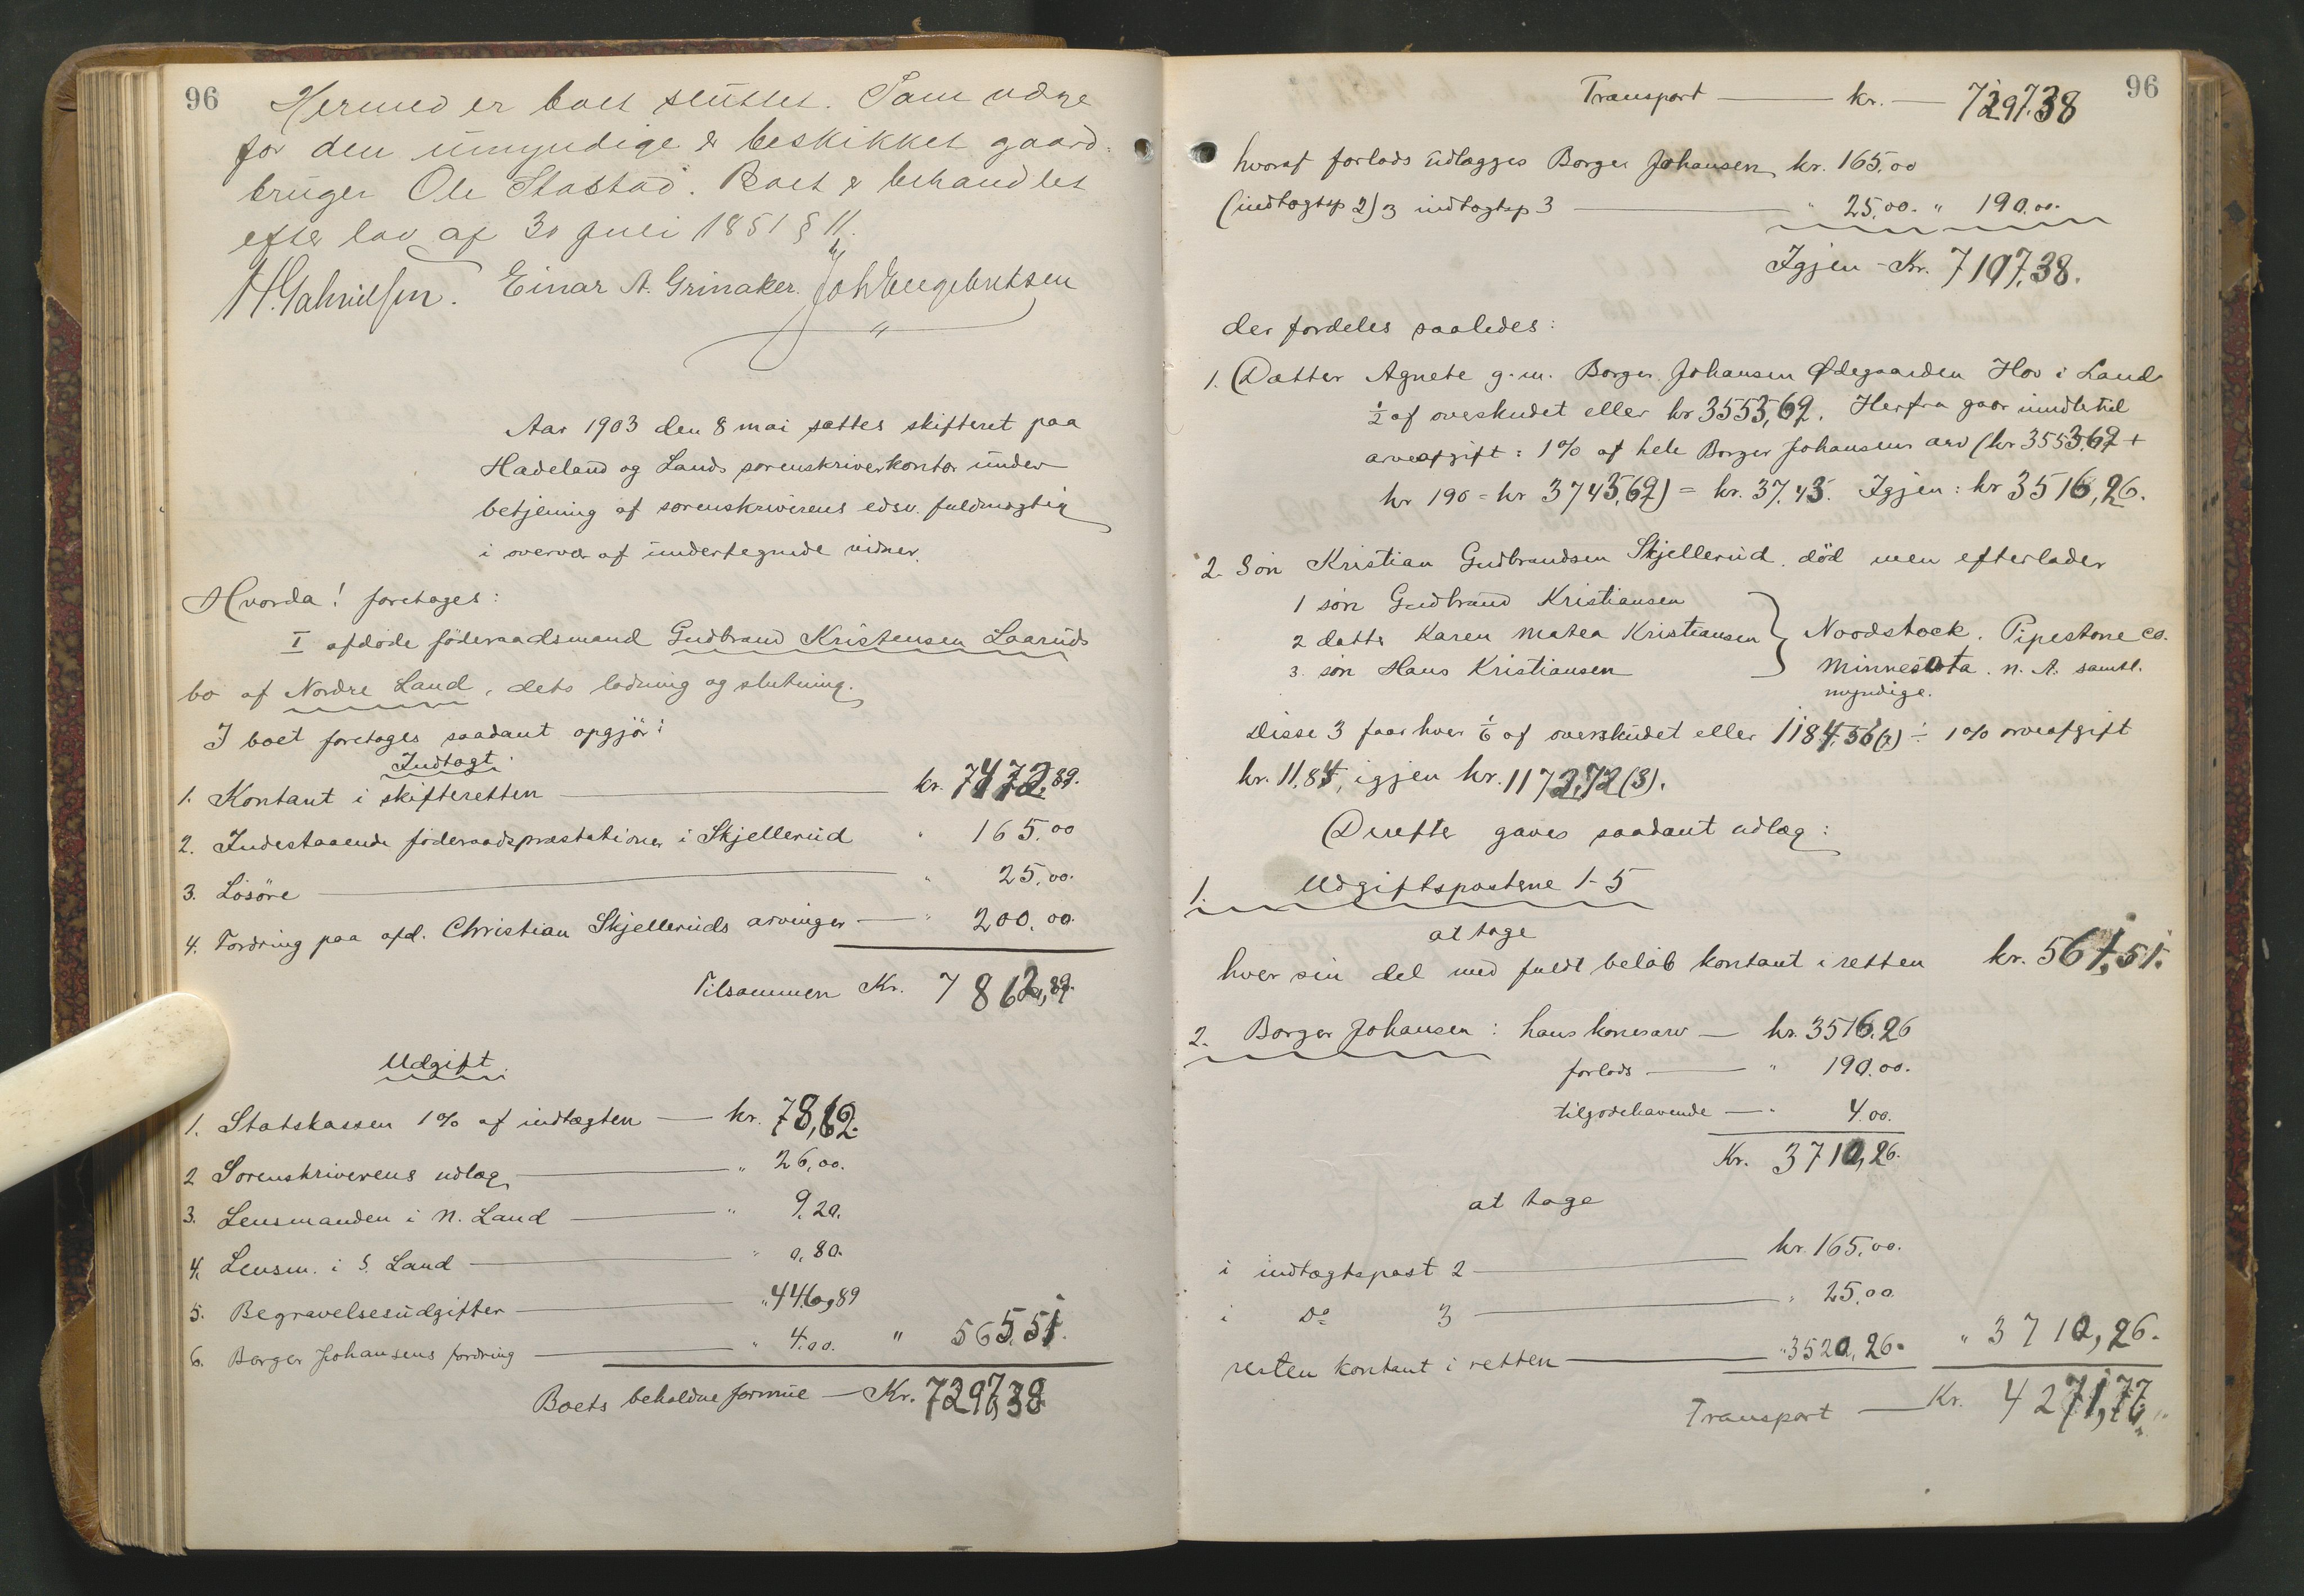 96
Hermed er boet sluttet. Som værge
for den umyndige er beskikket gaard-
bruger Ole Stastad. Boet er behandlet
efter lov af 30 Juli 1851 § 11.
H. Gabrielsen. Einar A. Grinaker. Joh Engebretsen
Aar 1903 den 8 mai sattes skifteret paa
Hadeland og Lands sorenskriverkontor under
betjening af sorenskriverens edsv. fuldmægtig
i overvær af undertegnede vidner.
Hvorda! foretages:
I afdøde föderaadsmand Gudbrand Kristensen Laaruds
bo af Nordre Land, dets lodning og slutning.
I boet foretages saadant opgjör:
Indtægt.
1. Kontant i skifteretten kr. 7472,89.
2. Indestaaende föderaadspræstationer i Skjellerud " 165.00
3. Lösöre " 25.00.
4. Fordring paa afd. Christian Skjelleruds arvinger " 200.00.
Tilsammen Kr. 7862,89.
Udgift.
1. Statskassen 1% af indtægten kr. 78,62.
2 Sorenskriverens udlæg " 26,00.
3. Lensmanden i N. Land " 9.20.
4. Lensm. i S. Land " 0.80.
5. Begravelsesudgifter " 446,89
6. Borger Johansens fordring " 4.00. " 565.51.
Boets beholdne formue Kr. 7297,38
96
Transport kr. 7297.38
hvoraf forlods udlægges Borger Johansen kr. 165,00
(indtægtsp 2) & indtægtsp 3 " 25.00. " 190.00.
Igjen Kr. 7107,38.
der fordeles saaledes:
1. Datter Agnete g. m. Borger Johansen Ødegaarden Hov i Land
1/2 af overskudet eller kr 3553,69. Herfra gaar imidlertid
arveafgift: 1% af hele Borger Johansens arv (kr 3553,69 +
kr 190 = kr 3743,69) = kr. 37.43. Igjen: kr 3516,26.
2. Sön Kristian Gudbrandsen Skjellerud. död men efterlader
1 sön Gudbrand Kristiansen
2 datter Karen Matea Kristiansen } Noodstock. Pipestone co.
3. sön Hans Kristiansen Minnesota. N. A. samtl.
myndige.
Disse 3 faar hver 1/6 af overskudet eller 1184,56(7) ÷ 1% arveafgift
kr. 11.84, igjen kr. 1172,72(3).
Derefter gaves saadant udlæg:
1. Udgiftsposterne 1-5
at tage
hver sin del med fuldt belöb kontant i retten kr. 561,51.
2. Borger Johansen: hans konesarv kr. 3516.26
forlods " 190.00.
tilgodehavende " 4.00.
Kr. 3710,26.
at tage
i indtægtspost 2 kr. 165.00.
i Do 3 " 25.00.
resten kontant i retten " 3520,26. " 3710,26.
Transport Kr. 4271,77.